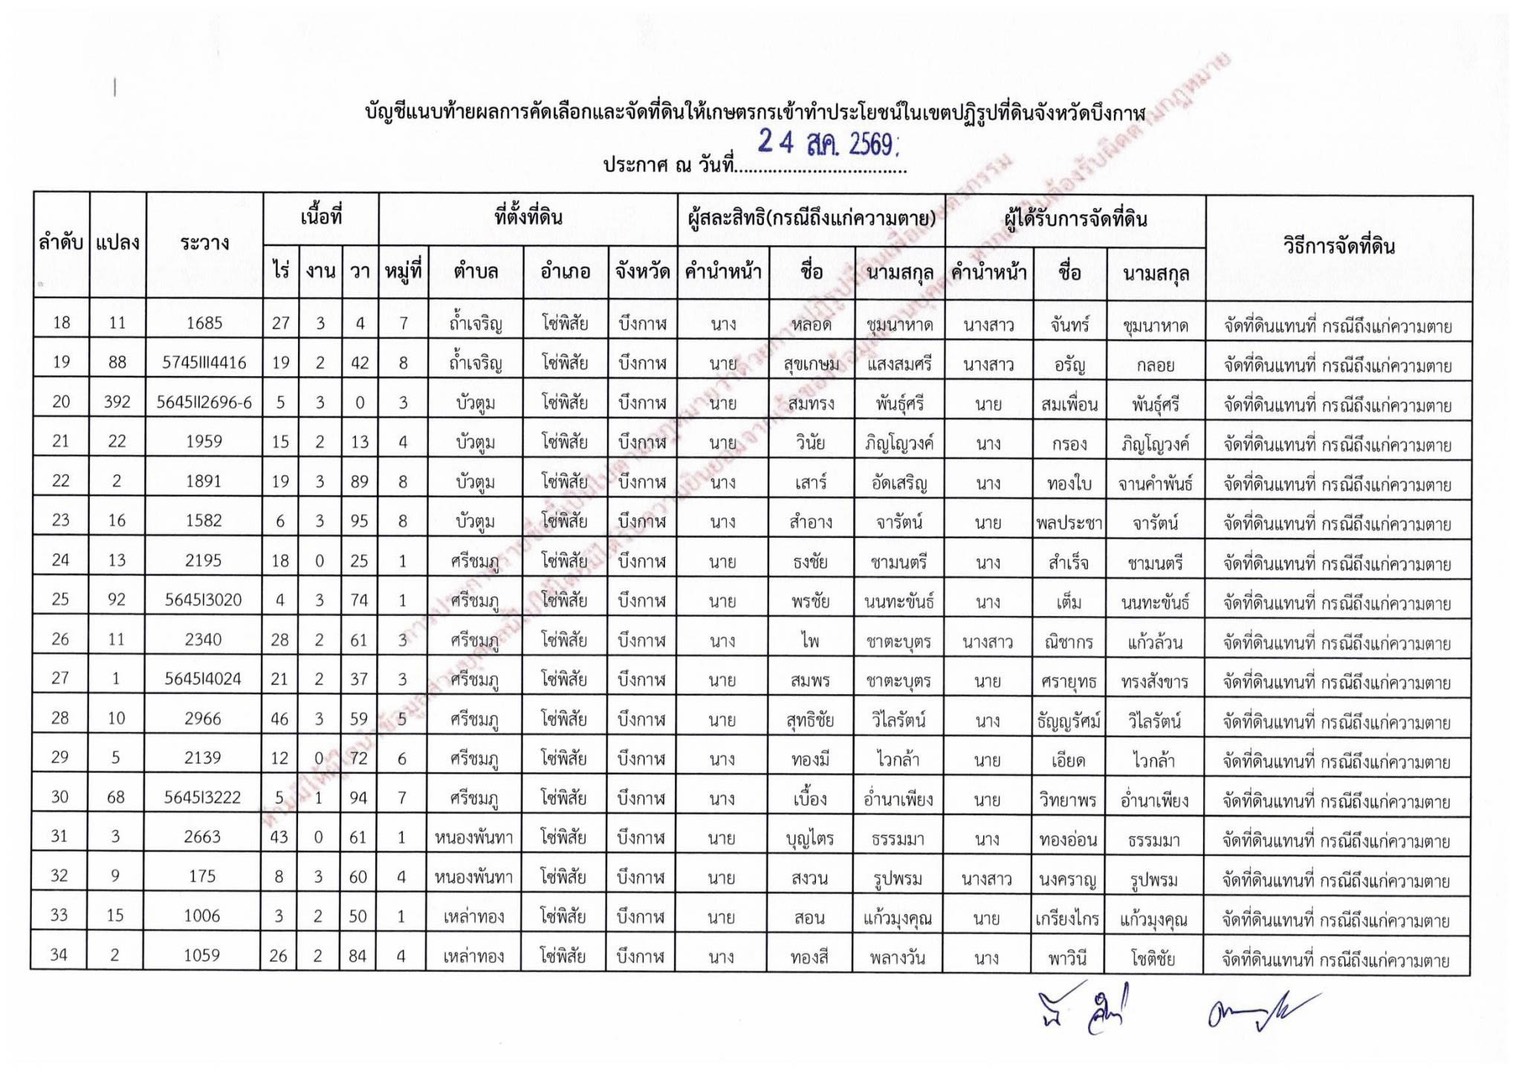 บัญชีแนบท้ายผลการคัดเลือกและจัดที่ดินให้เกษตรกรเข้าทำประโยชน์ในเขตปฏิรูปที่ดินจังหวัดบึงกาฬ
ประกาศ ณ วันที่ 24 ส.ค. 2569
ลำดับ แปลง ระวาง เนื้อที่ ที่ตั้งที่ดิน ผู้สละสิทธิ(กรณีถึงแก่ความตาย) ผู้ได้รับการจัดที่ดิน วิธีการจัดที่ดิน
ไร่ งาน วา หมู่ที่ ตำบล อำเภอ จังหวัด คำนำหน้า ชื่อ นามสกุล คำนำหน้า ชื่อ นามสกุล
18 11 1685 27 3 4 7 ถ้ำเจริญ โซ่พิสัย บึงกาฬ นาง หลอด ชุมนาหาด นางสาว จันทร์ ชุมนาหาด จัดที่ดินแทนที่ กรณีถึงแก่ความตาย
19 88 5745III4416 19 2 42 8 ถ้ำเจริญ โซ่พิสัย บึงกาฬ นาย สุขเกษม แสงสมศรี นางสาว อรัญ กลอย จัดที่ดินแทนที่ กรณีถึงแก่ความตาย
20 392 5645II2696-6 5 3 0 3 บัวตูม โซ่พิสัย บึงกาฬ นาย สมทรง พันธุ์ศรี นาย สมเพื่อน พันธุ์ศรี จัดที่ดินแทนที่ กรณีถึงแก่ความตาย
21 22 1959 15 2 13 4 บัวตูม โซ่พิสัย บึงกาฬ นาย วินัย ภิญโญวงค์ นาง กรอง ภิญโญวงค์ จัดที่ดินแทนที่ กรณีถึงแก่ความตาย
22 2 1891 19 3 89 8 บัวตูม โซ่พิสัย บึงกาฬ นาง เสาร์ อัดเสริญ นาง ทองใบ จานคำพันธ์ จัดที่ดินแทนที่ กรณีถึงแก่ความตาย
23 16 1582 6 3 95 8 บัวตูม โซ่พิสัย บึงกาฬ นาง สำอาง จารัตน์ นาย พลประชา จารัตน์ จัดที่ดินแทนที่ กรณีถึงแก่ความตาย
24 13 2195 18 0 25 1 ศรีชมภู โซ่พิสัย บึงกาฬ นาย ธงชัย ชามนตรี นาง สำเร็จ ชามนตรี จัดที่ดินแทนที่ กรณีถึงแก่ความตาย
25 92 5645I3020 4 3 74 1 ศรีชมภู โซ่พิสัย บึงกาฬ นาย พรชัย นนทะขันธ์ นาง เต็ม นนทะขันธ์ จัดที่ดินแทนที่ กรณีถึงแก่ความตาย
26 11 2340 28 2 61 3 ศรีชมภู โซ่พิสัย บึงกาฬ นาง ไพ ชาตะบุตร นางสาว ณิชากร แก้วล้วน จัดที่ดินแทนที่ กรณีถึงแก่ความตาย
27 1 5645I4024 21 2 37 3 ศรีชมภู โซ่พิสัย บึงกาฬ นาย สมพร ชาตะบุตร นาย ศรายุทธ ทรงสังขาร จัดที่ดินแทนที่ กรณีถึงแก่ความตาย
28 10 2966 46 3 59 5 ศรีชมภู โซ่พิสัย บึงกาฬ นาย สุทธิชัย วิไลรัตน์ นาง ธัญญรัศม์ วิไลรัตน์ จัดที่ดินแทนที่ กรณีถึงแก่ความตาย
29 5 2139 12 0 72 6 ศรีชมภู โซ่พิสัย บึงกาฬ นาง ทองมี ไวกล้า นาย เอียด ไวกล้า จัดที่ดินแทนที่ กรณีถึงแก่ความตาย
30 68 5645I3222 5 1 94 7 ศรีชมภู โซ่พิสัย บึงกาฬ นาง เบื้อง อ่ำนาเพียง นาย วิทยาพร อ่ำนาเพียง จัดที่ดินแทนที่ กรณีถึงแก่ความตาย
31 3 2663 43 0 61 1 หนองพันทา โซ่พิสัย บึงกาฬ นาย บุญไตร ธรรมมา นาง ทองอ่อน ธรรมมา จัดที่ดินแทนที่ กรณีถึงแก่ความตาย
32 9 175 8 3 60 4 หนองพันทา โซ่พิสัย บึงกาฬ นาย สงวน รูปพรม นางสาว นงคราญ รูปพรม จัดที่ดินแทนที่ กรณีถึงแก่ความตาย
33 15 1006 3 2 50 1 เหล่าทอง โซ่พิสัย บึงกาฬ นาย สอน แก้วมุงคุณ นาย เกรียงไกร แก้วมุงคุณ จัดที่ดินแทนที่ กรณีถึงแก่ความตาย
34 2 1059 26 2 84 4 เหล่าทอง โซ่พิสัย บึงกาฬ นาง ทองสี พลางวัน นาง พาวินี โชติชัย จัดที่ดินแทนที่ กรณีถึงแก่ความตาย